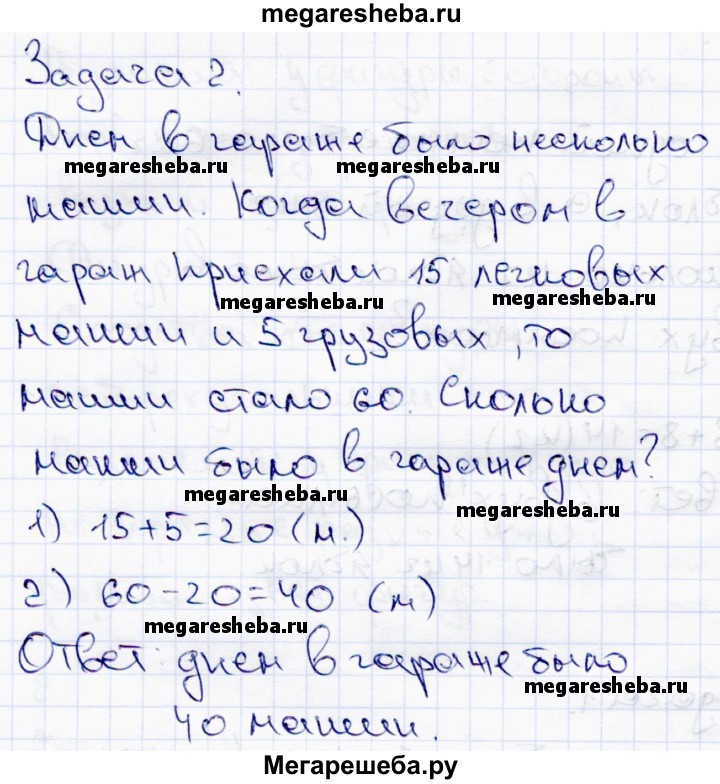 megaresheba.ru
Задача 2.
Днем в гараже было несколько
megaresheba.ru megaresheba.ru
машин. Когда вечером в
гараж приехали 15 легковых
megaresheba.ru megaresheba.ru
машин и 5 грузовых, то
машин стало 60. Сколько
машин было в гараже днем?
megaresheba.ru
1) 15+5=20 (м.)
megaresheba.ru
2) 60-20=40 (м)
megaresheba.ru
Ответ: днем в гараже было
megaresheba.ru
40 машин.
Мегарешеба.ру